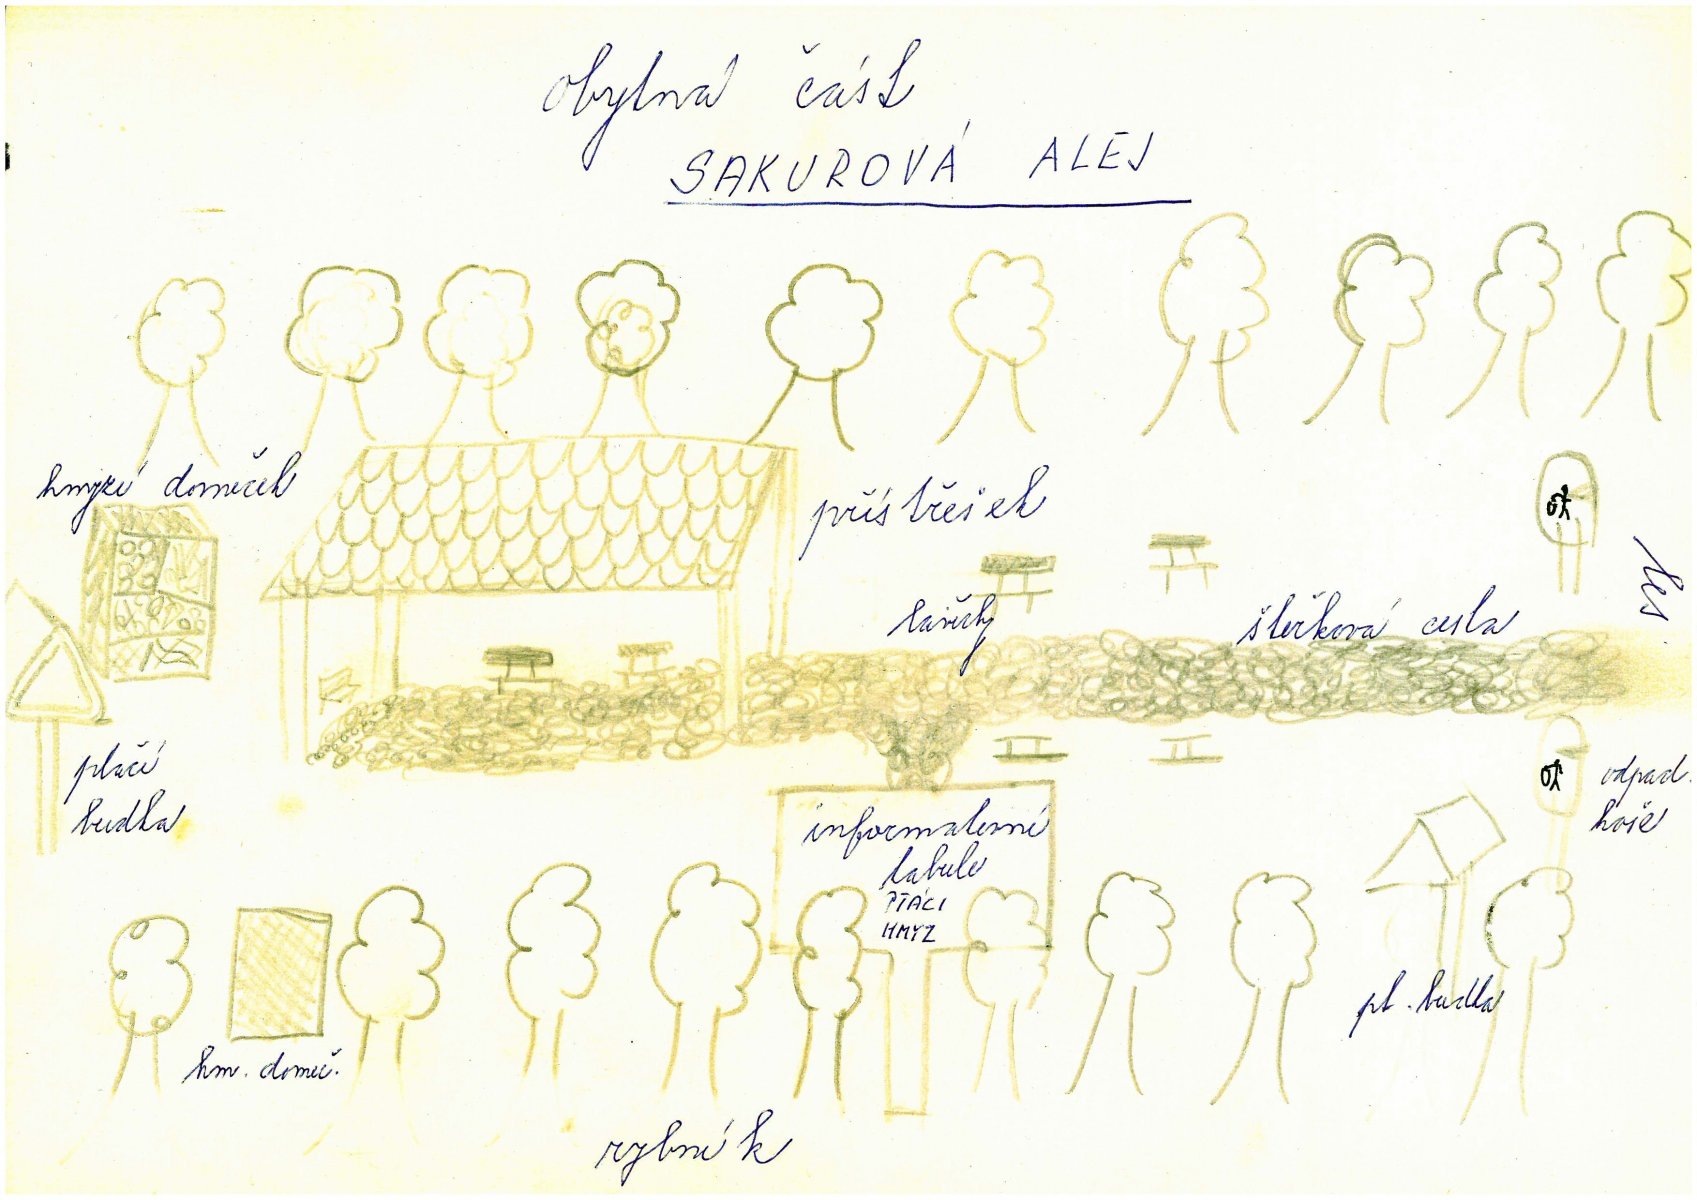 obytná část
SAKUROVÁ ALEJ
hmyzí domeček
přístřešek
les
lavičky
štěrková cesta
ptačí
budka
odpad.
koše
informační
tabule
PTÁCI
HMYZ
pt. budka
hm. domeč.
rybník